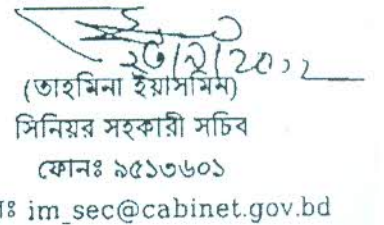 (তাহমিনা ইয়াসমিন)
সিনিয়র সহকারী সচিব
ফোনঃ ৯৫১৩৬০১
im_sec@cabinet.gov.bd